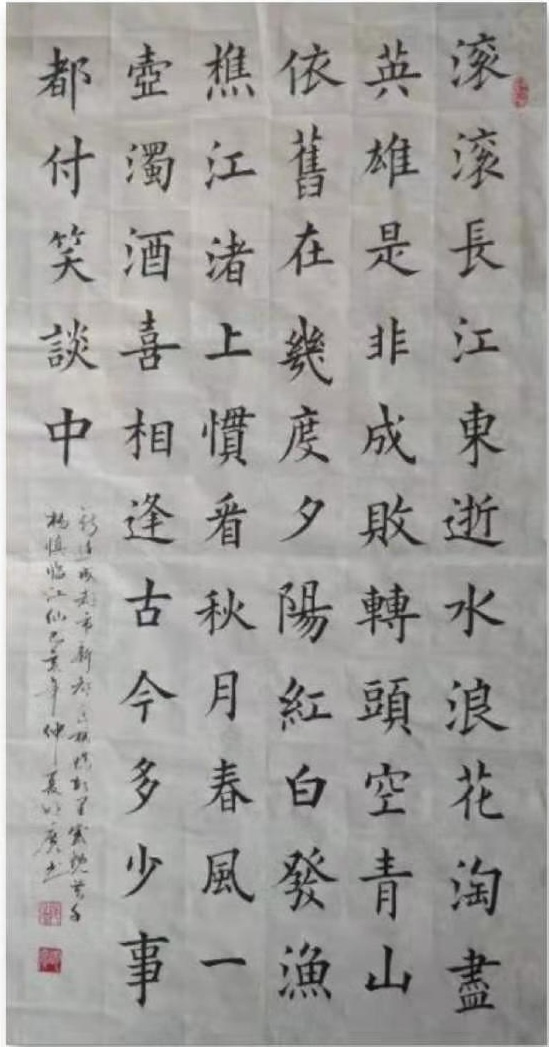 滚滚長江東逝水浪花淘盡
英雄是非成敗轉頭空青山
依舊在幾度夕陽紅白發漁
樵江渚上慣看秋月春風一
壺濁酒喜相逢古今多少事
都付笑談中
成都市新都
楊慎臨江仙己亥年仲夏